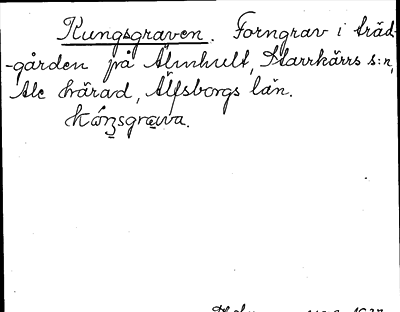 Kungsgraven. Forngrav i träd-
-gården på Älmhult, Starrkärrs s:n,
Ale härad, Älfsborgs län.
Kóṉsgra̱va.